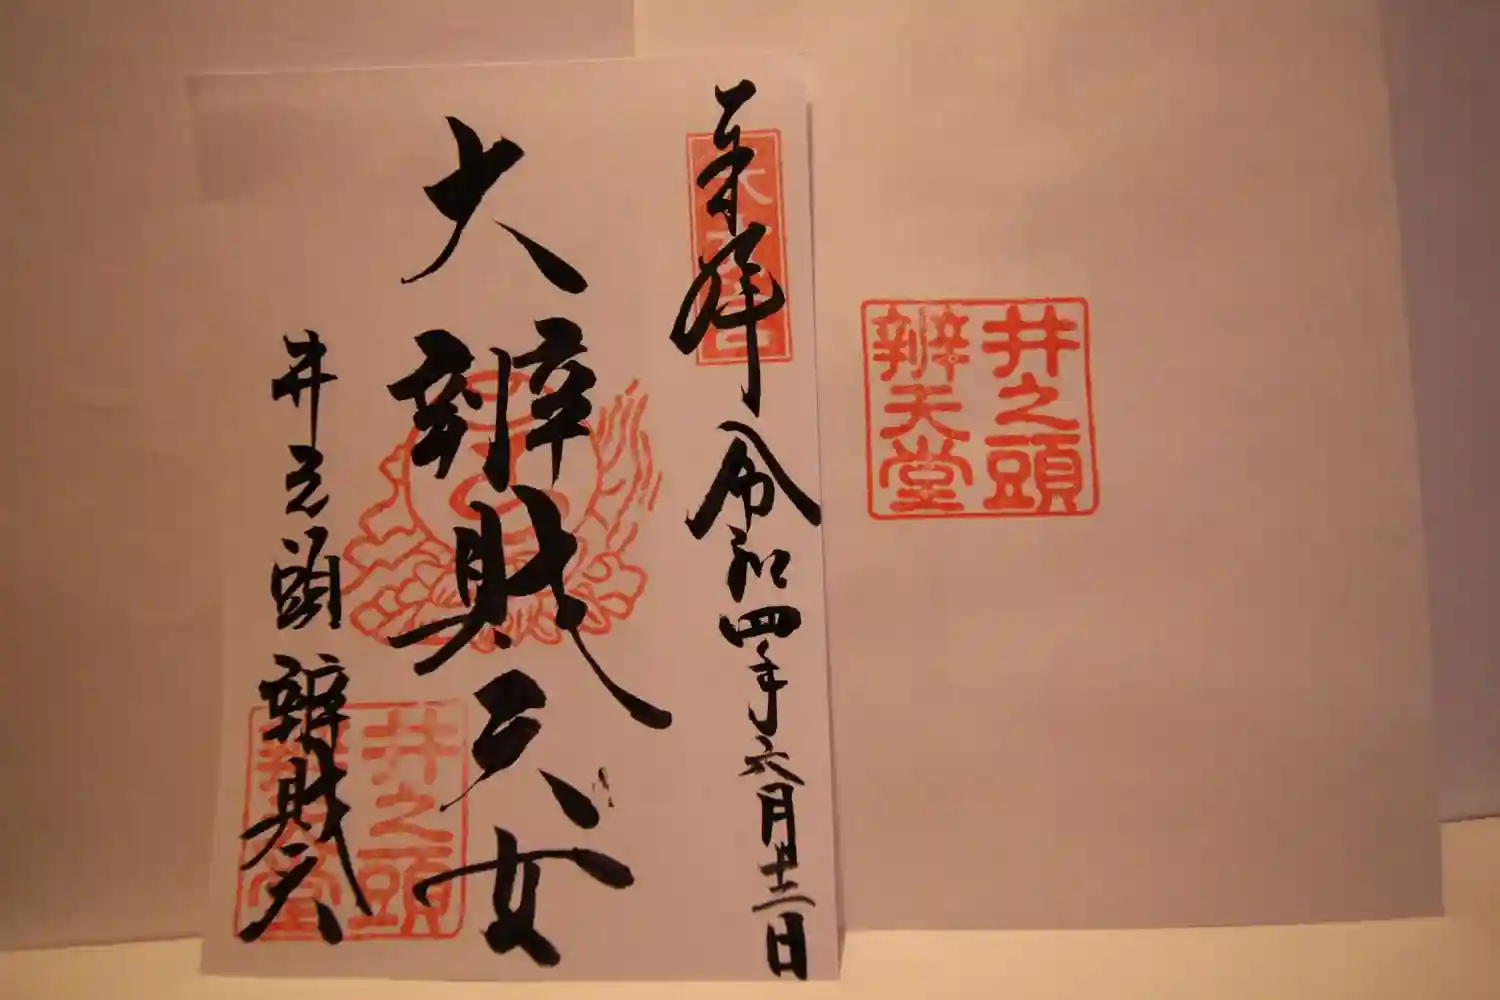 奉拝 令和四年六月十二日
大辨財天女
井之頭 辨財天
井之頭
辨天堂
井之頭
辨天堂